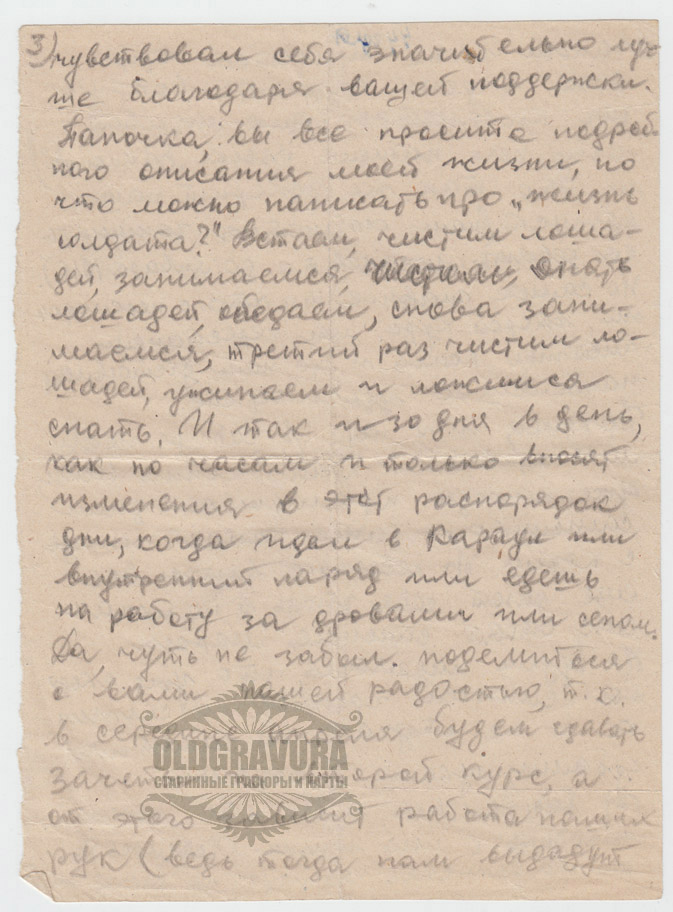 3) чувствовал себя значительно луч-
ше благодаря вашей поддержки.
Папочка, вы все просите подроб
ного описания моей жизни, но
что можно написать про „жизнь
солдата?" Встаем, чистим лоша-
дей, занимаемся, опять
лошадей, обедаем, снова зани-
маемся, третий раз чистим ло-
шадей, ужинаем и ложимся
спать. И так изо дня в день,
как по часам и только вносят
изменения в этот распорядок
дни, когда идем в караул или
внутренний наряд или едешь
на работу за дровами или сеном.
Да, чуть не забыл поделиться
с вами нашей радостью, т.к.
в середине апреля будем сдавать
OLDGRAVURA
СТАРИННЫЕ ГРАВЮРЫ И КАРТЫ
курс, а
от этого зависит работа наших
рук (ведь тогда нам выдадут